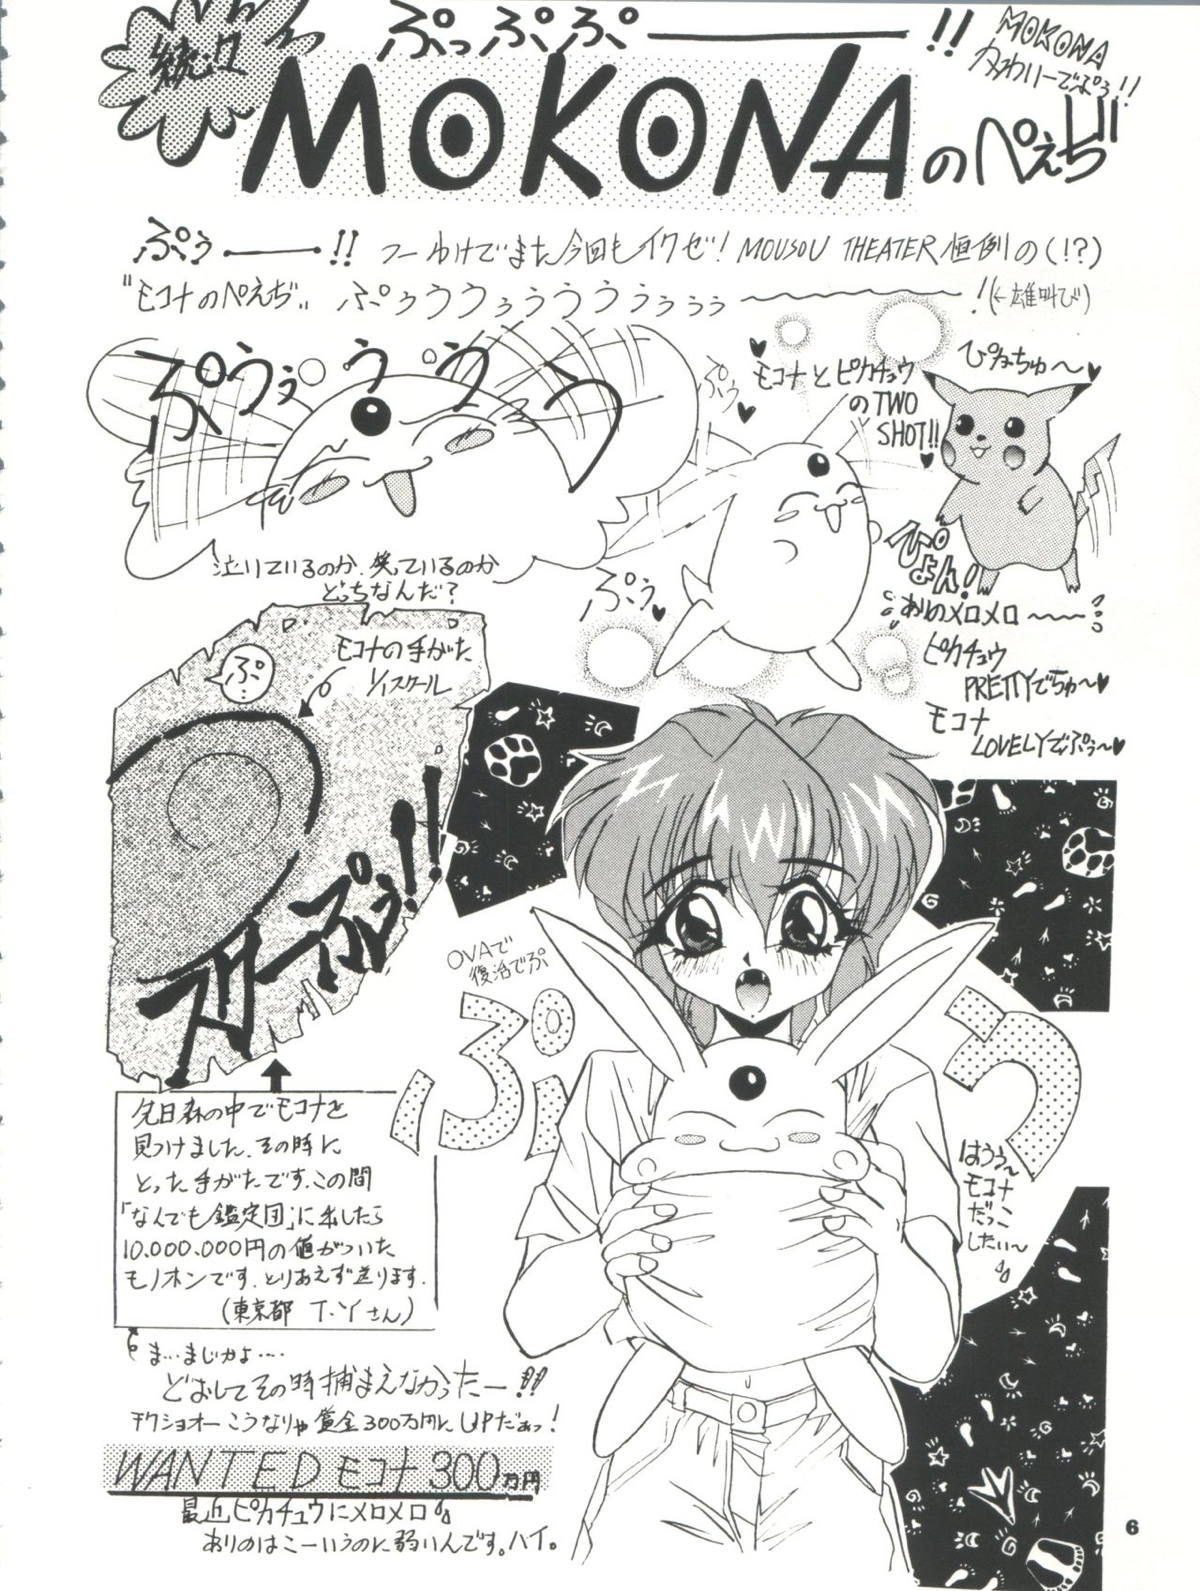 続々
ぷっぷぷ———!!
MOKONA
かわいーでぷぅ!!
MOKONAのぺえぢ!!
ぷぅ———!! つーわけでまた今回もイクゼ! MOUSOU THEATER恒例の(!?)
"モコナのぺえぢ" ぷぅうううぅぅぅ〜〜〜!(←雄叫び)
ぷうぅううう
泣いているのか、笑っているのか
どっちなんだ?
ぷぅ
モコナとピカチュウ
のTWO
SHOT!!
ぴかちゅ〜
ぷぅ
ぴょん!
ありのメロメロ〜〜
ピカチュウ
PRETTYでちゅ〜
モコナ
LOVELYでぷぅ〜
ぷ
モコナの手がた
1/1スケール
スターぷぅ!!
OVAで
復活でぷ
ぷう
はうぅ〜
モコナ
だっこ
したい〜
先日森の中でモコナを
見つけました。その時に
とった手がたです。この間
「なんでも鑑定団」に出したら
10.000.000円の値がついた
モノホンです。とりあえず送ります。
(東京都 T・Yさん)
ま…まじかよ….
どおしてその時捕まえなかったー!!
チクショオーこうなりゃ賞金300万円に UPだぁっ!
WANTED モコナ 300万円
最近ピカチュウにメロメロ
ありのはこーいうのに弱いんです。ハイ。
6